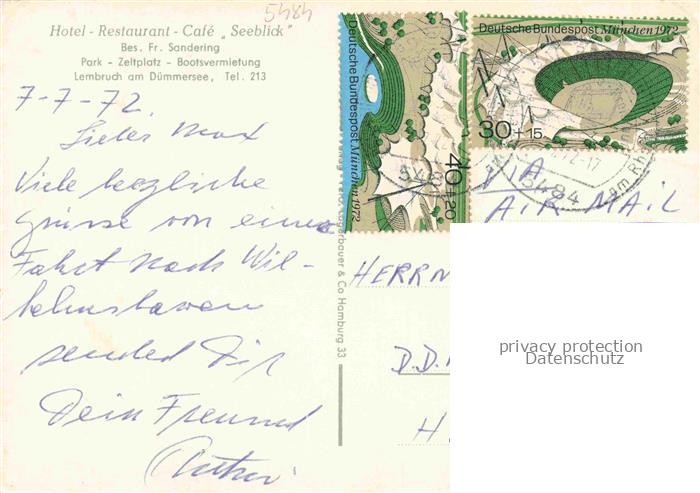 5484
Hotel - Restaurant - Café „Seeblick"
Bes. Fr. Sandering
Park - Zeltplatz - Bootsvermietung
Lembruch am Dümmersee, Tel. 213
7-7-72.
Lieber Max
Viele herzliche
Grüsse von einer
Fahrt nach Wil-
helmshaven
sendet Dir
Dein Freund
Deutsche Bundespost München 1972
40+20
Deutsche Bundespost München 1972
30+15
5484
72-17
5484
am Rh
& Co Hamburg 33
VIA
AIR MAIL
HERRN
D.D.
H
privacy protection
Datenschutz